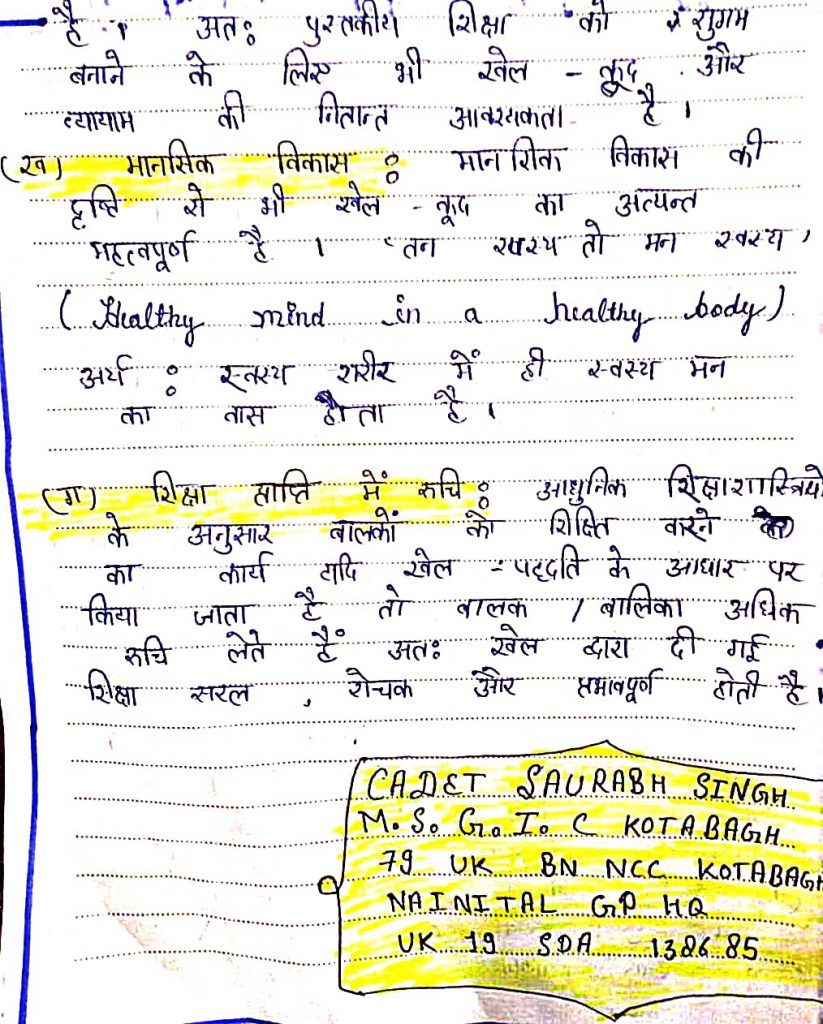 है । अतः पुस्तकीय शिक्षा को सुगम
बनाने के लिए भी खेल - कूद और
व्यायाम की नितान्त आवश्यकता है ।
(ख) मानसिक विकास : मानशिक विकास की
दृष्टि से भी खेल - कूद का अत्यन्त
महत्वपूर्ण है । 'तन स्वस्थ तो मन स्वस्थ'
( Healthy mind in a healthy body )
अर्थ : स्वस्थ शरीर में ही स्वस्थ मन
का वास होता है ।
(ग) शिक्षा प्राप्ति में रुचि : आधुनिक शिक्षाशास्त्रियो
के अनुसार बालकों को शिक्षित करने
का कार्य यदि खेल - पद्दति के आधार पर
किया जाता है तो बालक / बालिका अधिक
रुचि लेते हैं अतः खेल द्वारा दी गई
शिक्षा सरल , रोचक और प्रभावपूर्ण होती है ।
CADET SAURABH SINGH
M. S. G. I. C KOTABAGH
79 UK BN NCC KOTABAGH
NAINITAL GP HQ
UK 19 SDA 138685